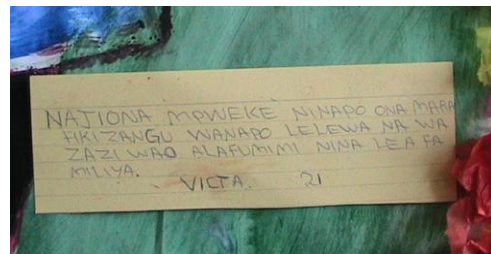 NAJIONA MPWEKE NINAPO ONA MARA
FIKI ZANGU WANAPO LELEWA NA WA
ZAZI WAO ALAFUMIMI NINA LEA FA
MILIYA.
VICTA. 21